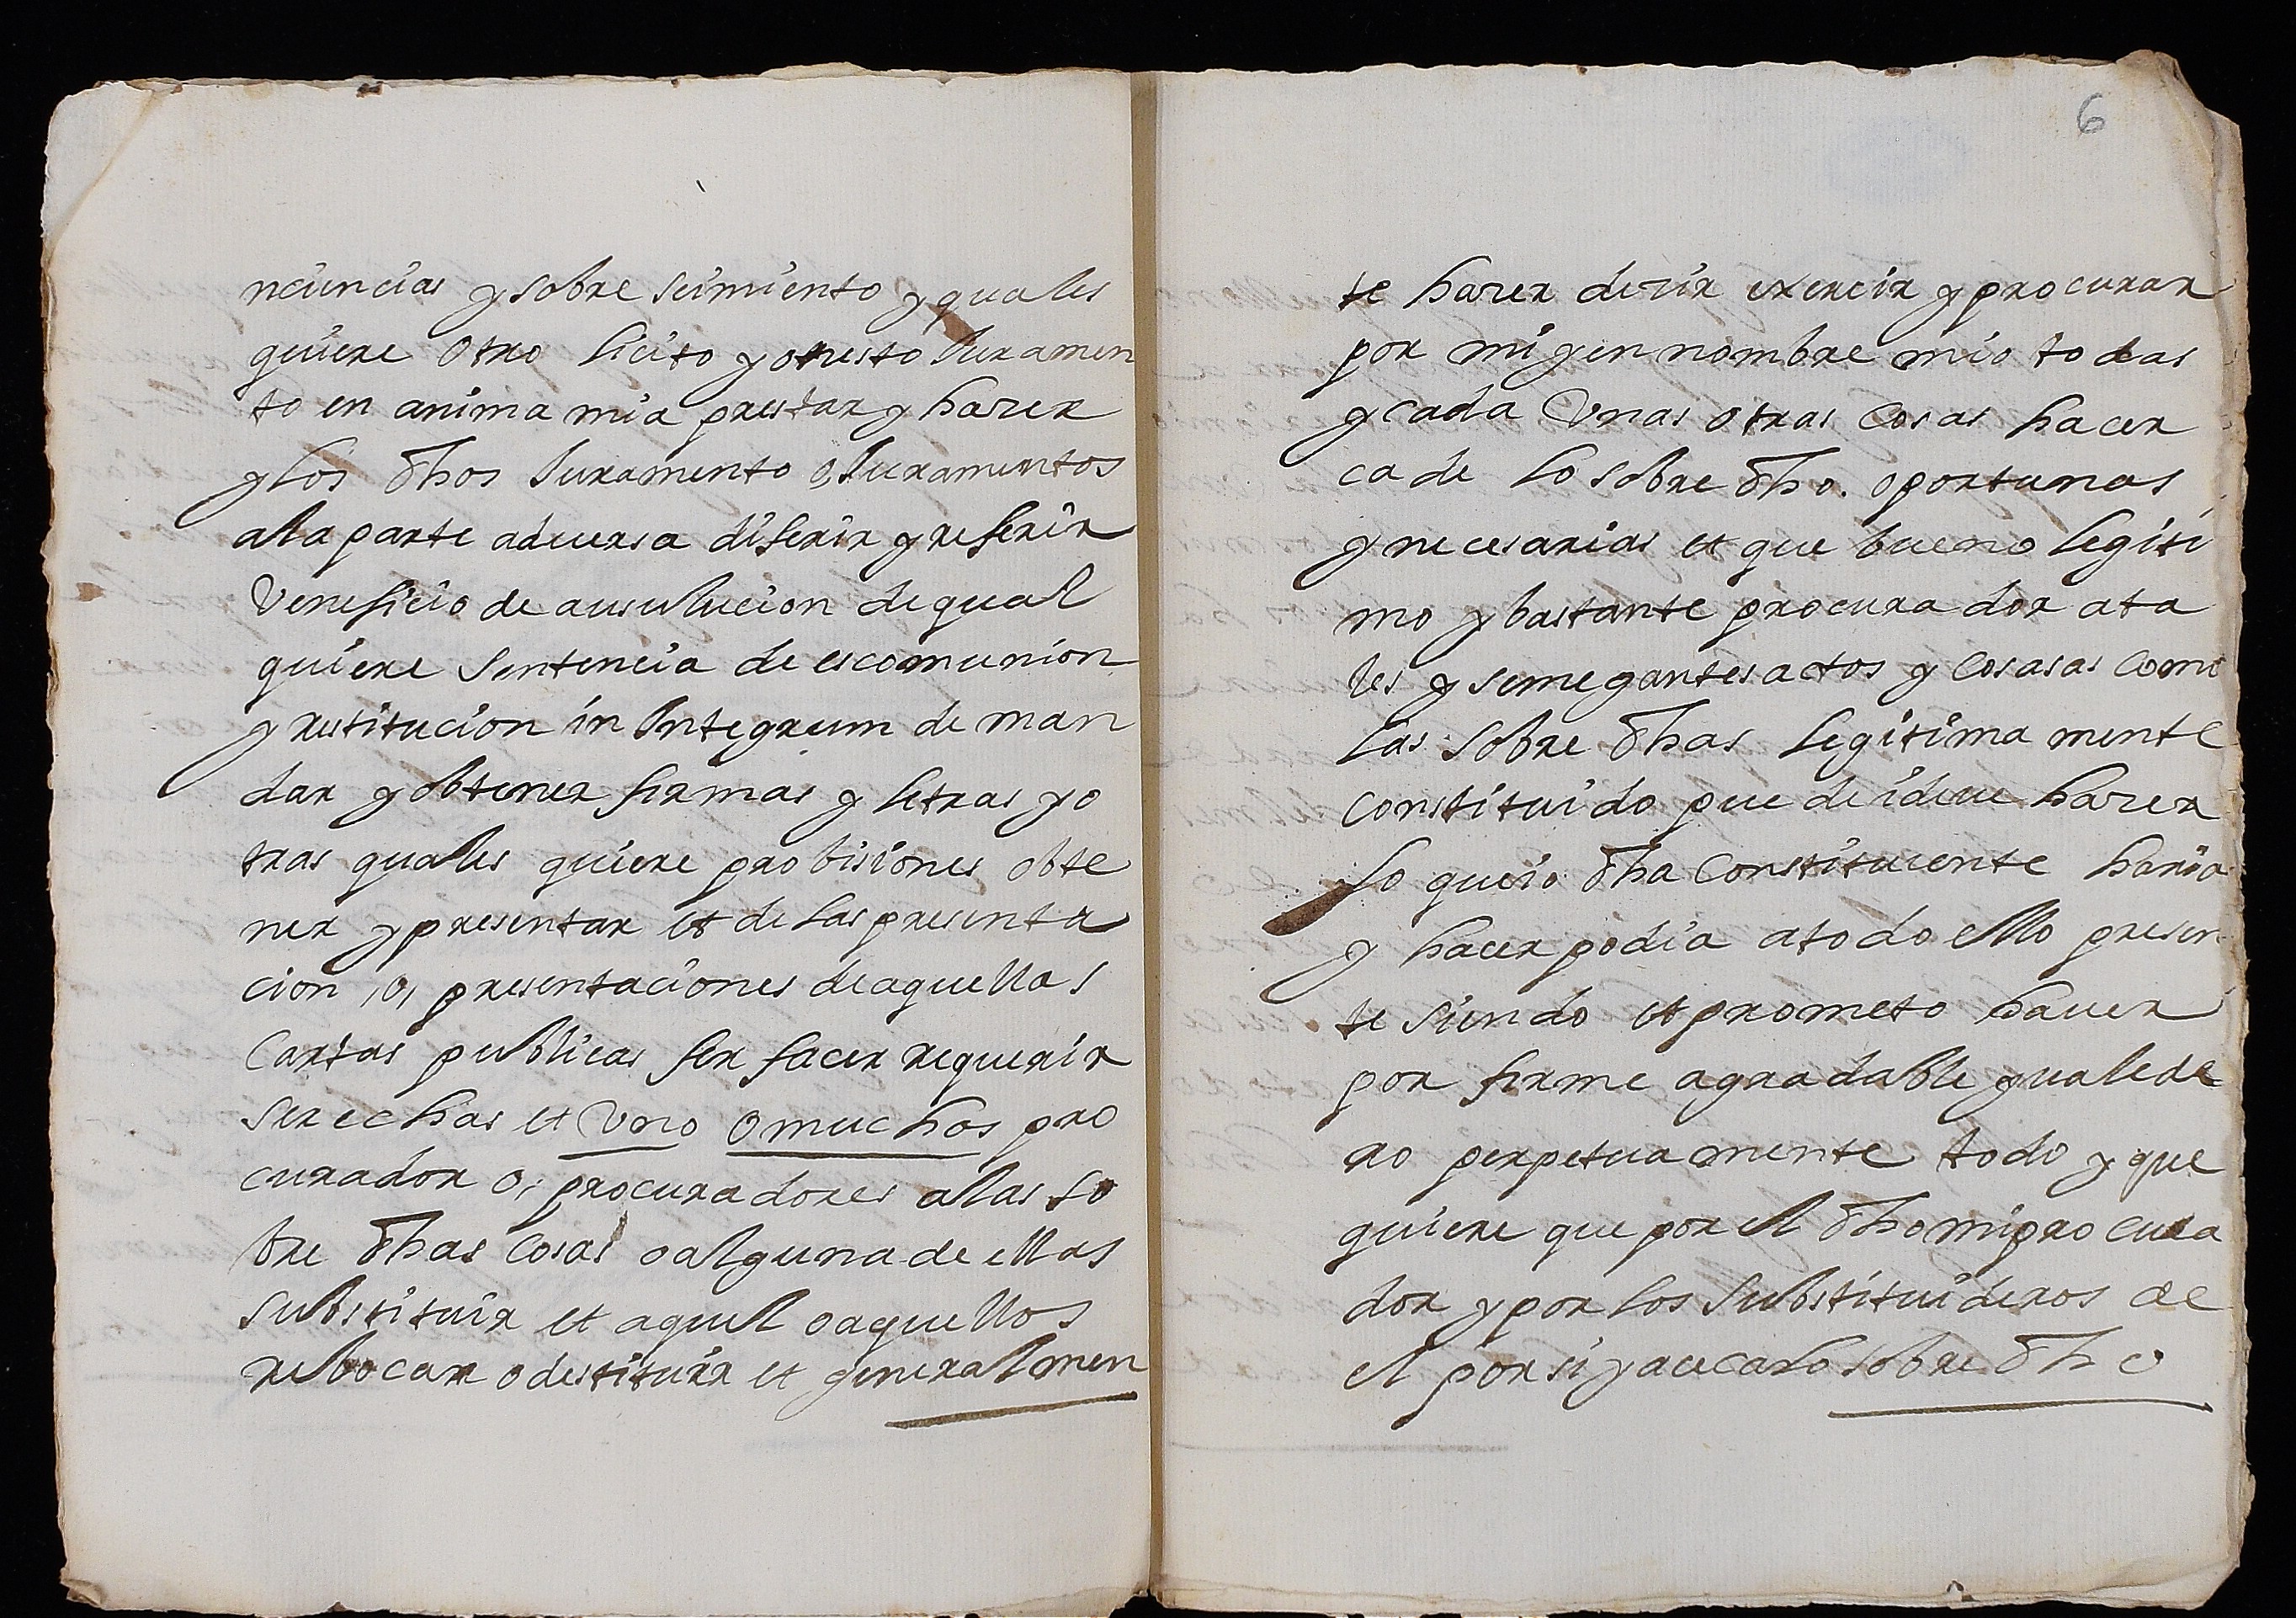 nuncias y sobre seimiento y quales
quiere otro licito y onesto Juramen
to en anima mia prestar y hazer
y los dhos Juramento o, Juramentos
ala parte aduersa diferir y referir
Veneficio de ausulucion de qual
quiere sentencia de escomunion
y restitucion in Integrum deman
dar y obtener firmas y letras yo
tras quales quiere probisiones obte
ner y presentar et de las presenta
cion ,o, presentaciones de aquellas
Cartas publicas fer facer requerir
ser echas et Vno o muchos pro
curador o, procuradores a las so
bre dhas cosas o alguna de ellas
substituir et aquel o aquellos
rebocar o destituir et generalmen
6
te hazer dezir exercir y procurar
por mi y en nombre mio todas
y cada Vnas otras Cosas hacer
ca de lo sobre dho. oportunas
y necesarias et que bueno legiti
mo y bastante procurador ata
les y semegantes actos y Cosasas Como
las sobre dhas legitima mente
Constituido puede i deue hazer
lo que io dha Constituiente haria
y hacer podia a todo ello presen
te siendo et prometo hauer
por firme agradable y ualede
ro perpetuamente todo y que
quiere que por el dho mi procura
dor y por los substituideros de
el por si y acecalo sobre dho